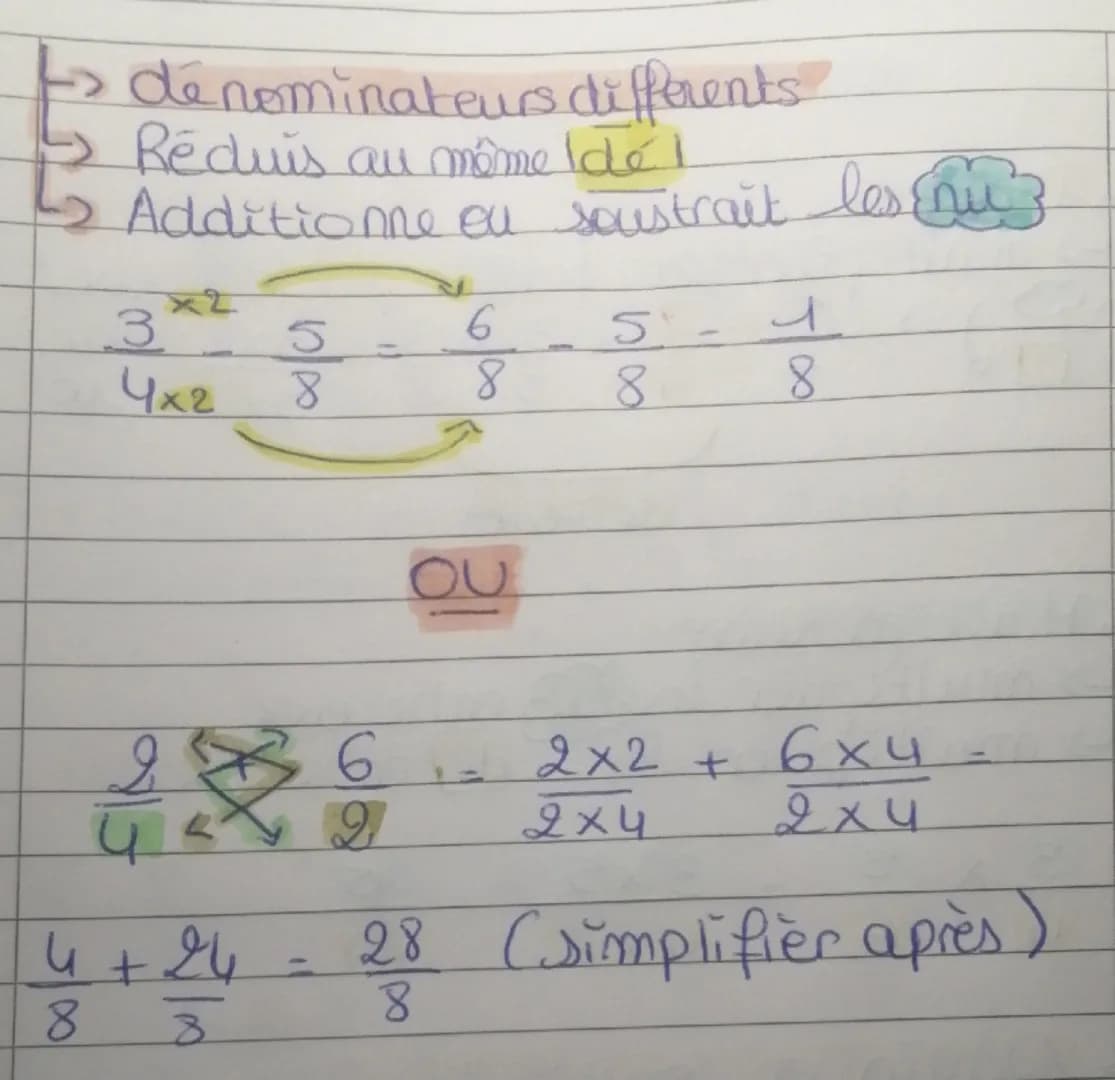 → dénominateurs différents
→ Réduis au même dé
→ Additionne ou soustrait les nu
3×2/4×2 - 5/8 = 6/8 - 5/8 = 1/8
OU
2/4 + 6/2 = 2×2/2×4 + 6×4/2×4 =
4/8 + 24/8 = 28/8 (simplifier après)